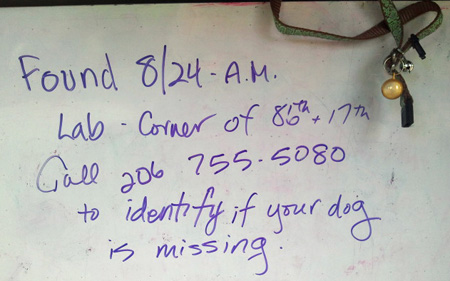 Found 8/24 - A.M.
Lab - Corner of 86th + 17th
Call 206 755-5080
to identify if your dog
is missing.